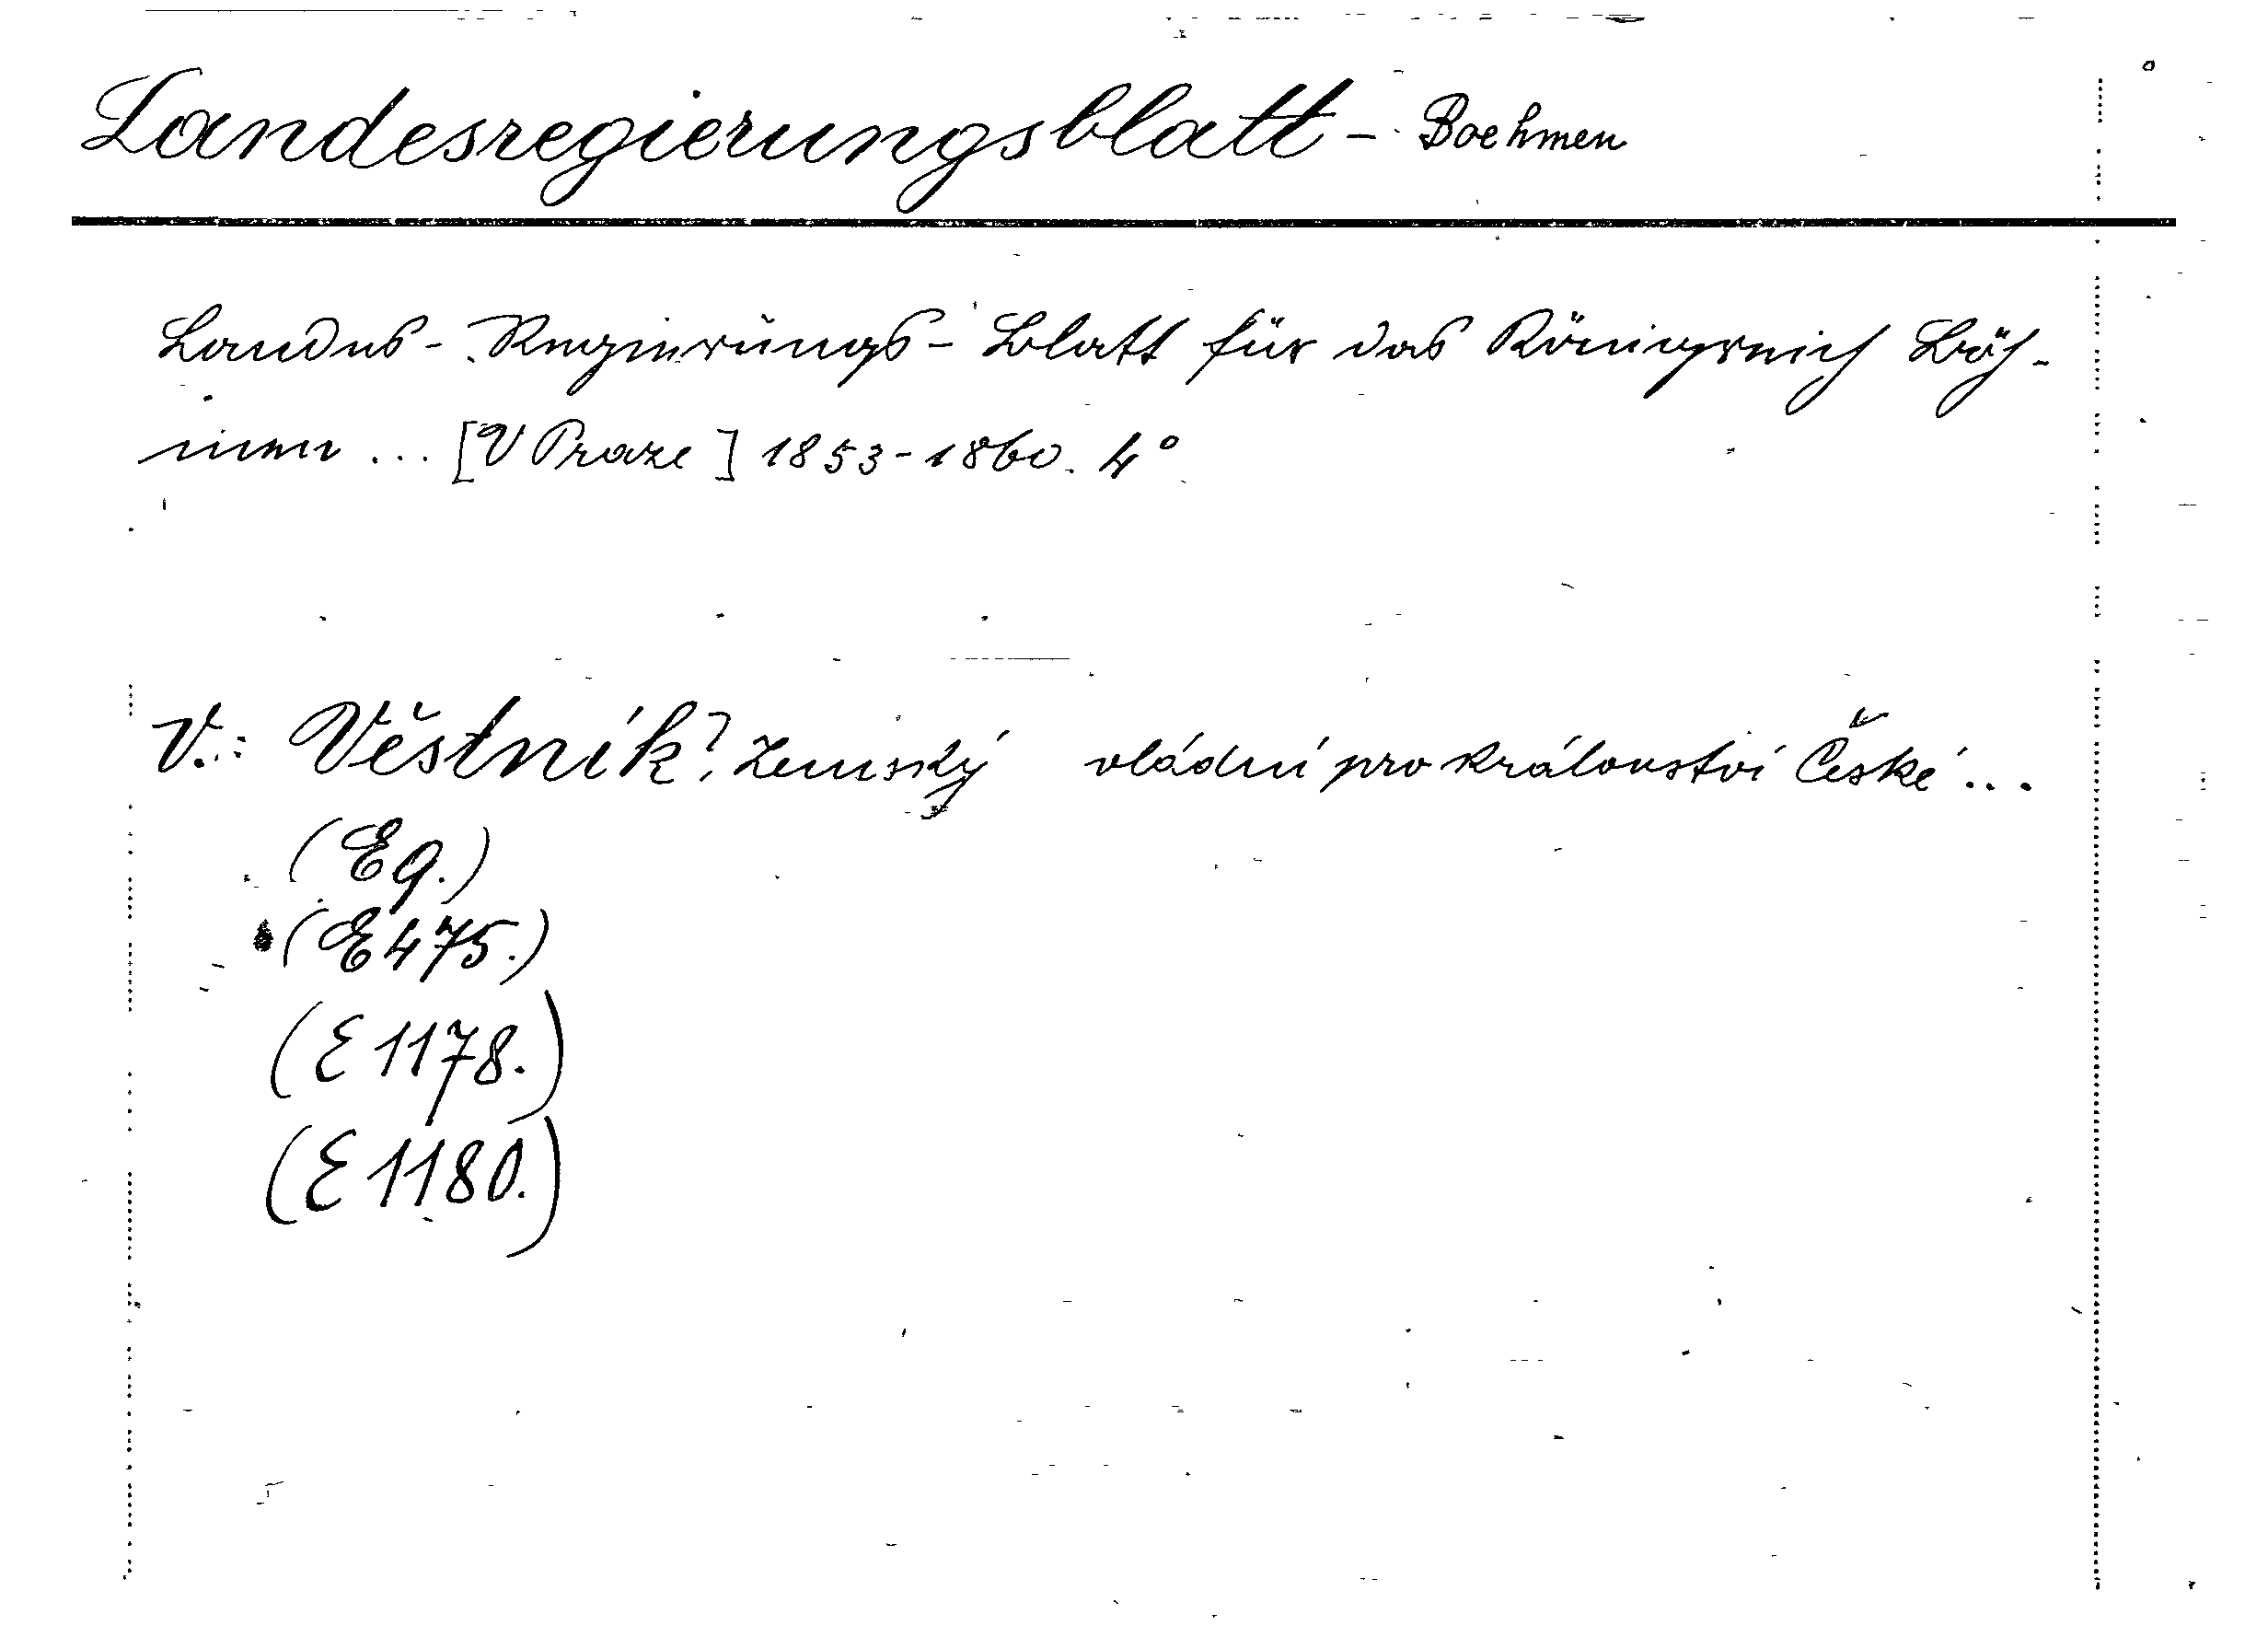 Landesregierungsblatt - Boehmen
Landes-Regierungs-Blatt für das Königreich Böh-
men ... [V Praze] 1853-1860. 4°
V.: Věstník?, Zemský vládní pro království České ...
(E9.)
(E475.)
(E1178.)
(E1180.)